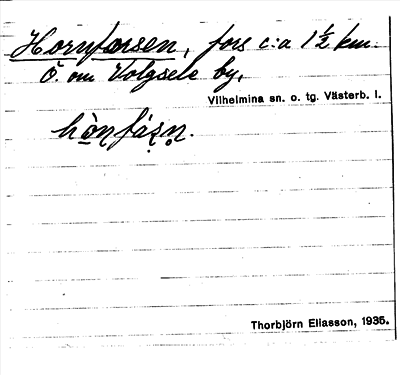 Hornforsen, fors c:a 1½ km.
Ö. om Volgsele by.
Vilhelmina sn. o. tg. Västerb. l.
hò̱ṇfá̱ṣṇ̥.
Thorbjörn Eliasson, 1935.